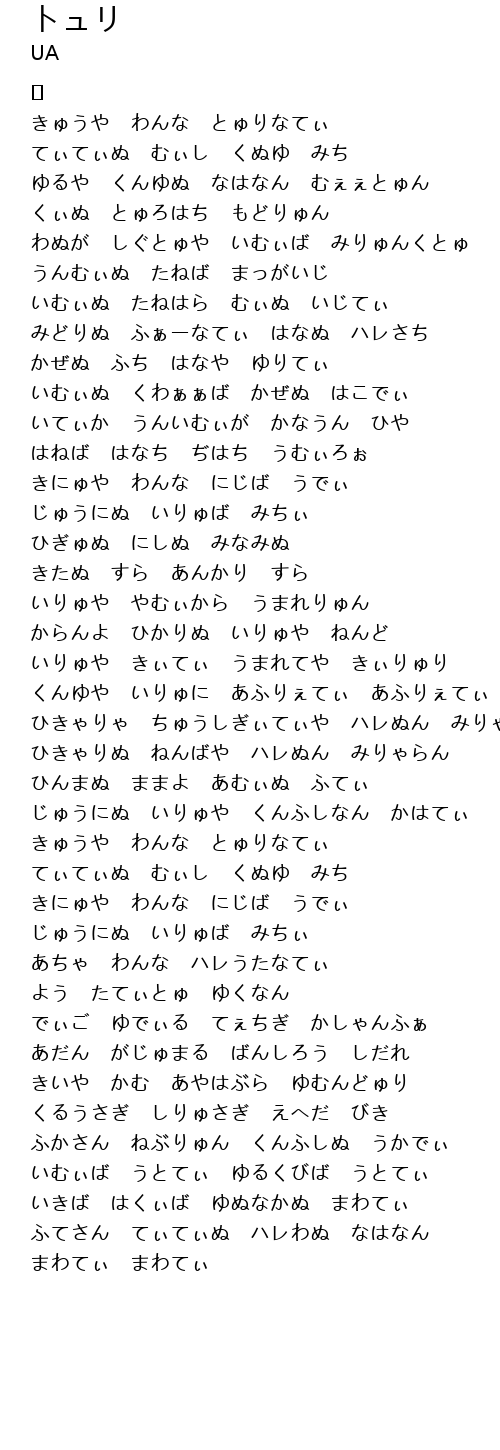 トュリ
UA
きゅうや　わんな　とゅりなてぃ
てぃてぃぬ　むぃし　くぬゆ　みち
ゆるや　くんゆぬ　なはなん　むぇぇとゅん
くぃぬ　とゅろはち　もどりゅん
わぬが　しぐとゅや　いむぃば　みりゅんくとゅ
うんむぃぬ　たねば　まっがいじ
いむぃぬ　たねはら　むぃぬ　いじてぃ
みどりぬ　ふぁーなてぃ　はなぬ　ハレさち
かぜぬ　ふち　はなや　ゆりてぃ
いむぃぬ　くわぁぁば　かぜぬ　はこでぃ
いてぃか　うんいむぃが　かなうん　ひや
はねば　はなち　ぢはち　うむぃろぉ
きにゅや　わんな　にじば　うでぃ
じゅうにぬ　いりゅば　みちぃ
ひぎゅぬ　にしぬ　みなみぬ
きたぬ　すら　あんかり　すら
いりゅや　やむぃから　うまれりゅん
からんよ　ひかりぬ　いりゅや　ねんど
いりゅや　きぃてぃ　うまれてや　きぃりゅり
くんゆや　いりゅに　あふりぇてぃ　あふりぇてぃ
ひきゃりゃ　ちゅうしぎぃてぃや　ハレぬん　みりゃ
ひきゃりぬ　ねんばや　ハレぬん　みりゃらん
ひんまぬ　ままよ　あむぃぬ　ふてぃ
じゅうにぬ　いりゅや　くんふしなん　かはてぃ
きゅうや　わんな　とゅりなてぃ
てぃてぃぬ　むぃし　くぬゆ　みち
きにゅや　わんな　にじば　うでぃ
じゅうにぬ　いりゅば　みちぃ
あちゃ　わんな　ハレうたなてぃ
よう　たてぃとゅ　ゆくなん
でぃご　ゆでぃる　てぇちぎ　かしゃんふぁ
あだん　がじゅまる　ばんしろう　しだれ
きいや　かむ　あやはぶら　ゆむんどゅり
くるうさぎ　しりゅさぎ　えへだ　びき
ふかさん　ねぶりゅん　くんふしぬ　うかでぃ
いむぃば　うとてぃ　ゆるくびば　うとてぃ
いきば　はくぃば　ゆぬなかぬ　まわてぃ
ふてさん　てぃてぃぬ　ハレわぬ　なはなん
まわてぃ　まわてぃ